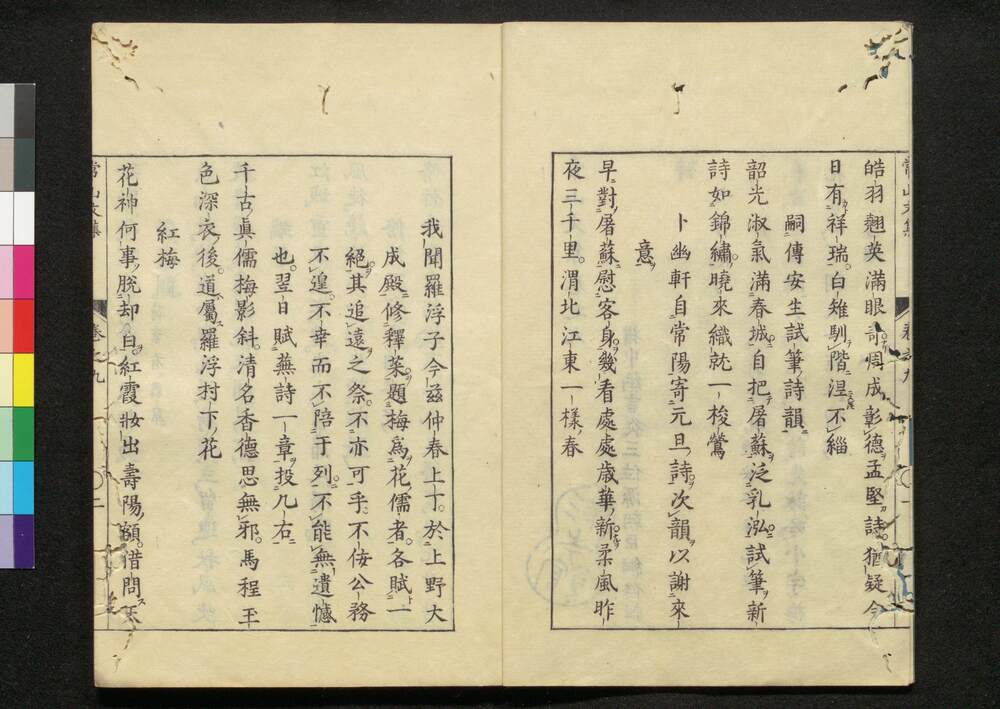 皓羽翹英滿眼奇惆成彰德孟堅詩猶疑今
日有祥瑞白雉馴階涅不緇
嗣傳安生試筆詩韻
韶光淑氣滿春城自把屠蘇泛乳泓試筆新
詩如錦繡曉來織就一梭鶯
卜幽軒自常陽寄元旦詩次韻以謝來
意
早對屠蘇慰客身幾看處處歲華新柔風昨
夜三千里渭北江東一樣春
我聞羅浮子今茲仲春上丁於上野大
成殿修釋菜題梅爲花儒者各賦一
絕其追遠之祭不亦可乎不佞公務
不遑不幸而不陪于列不能無遺憾
也翌日賦蕪詩一章投几右
千古眞儒梅影斜清名香德思無邪馬程王
色深衣後道屬羅浮村下花
紅梅
花神何事脫却白紅霞妝出壽陽額借問
常山文集
卷之九